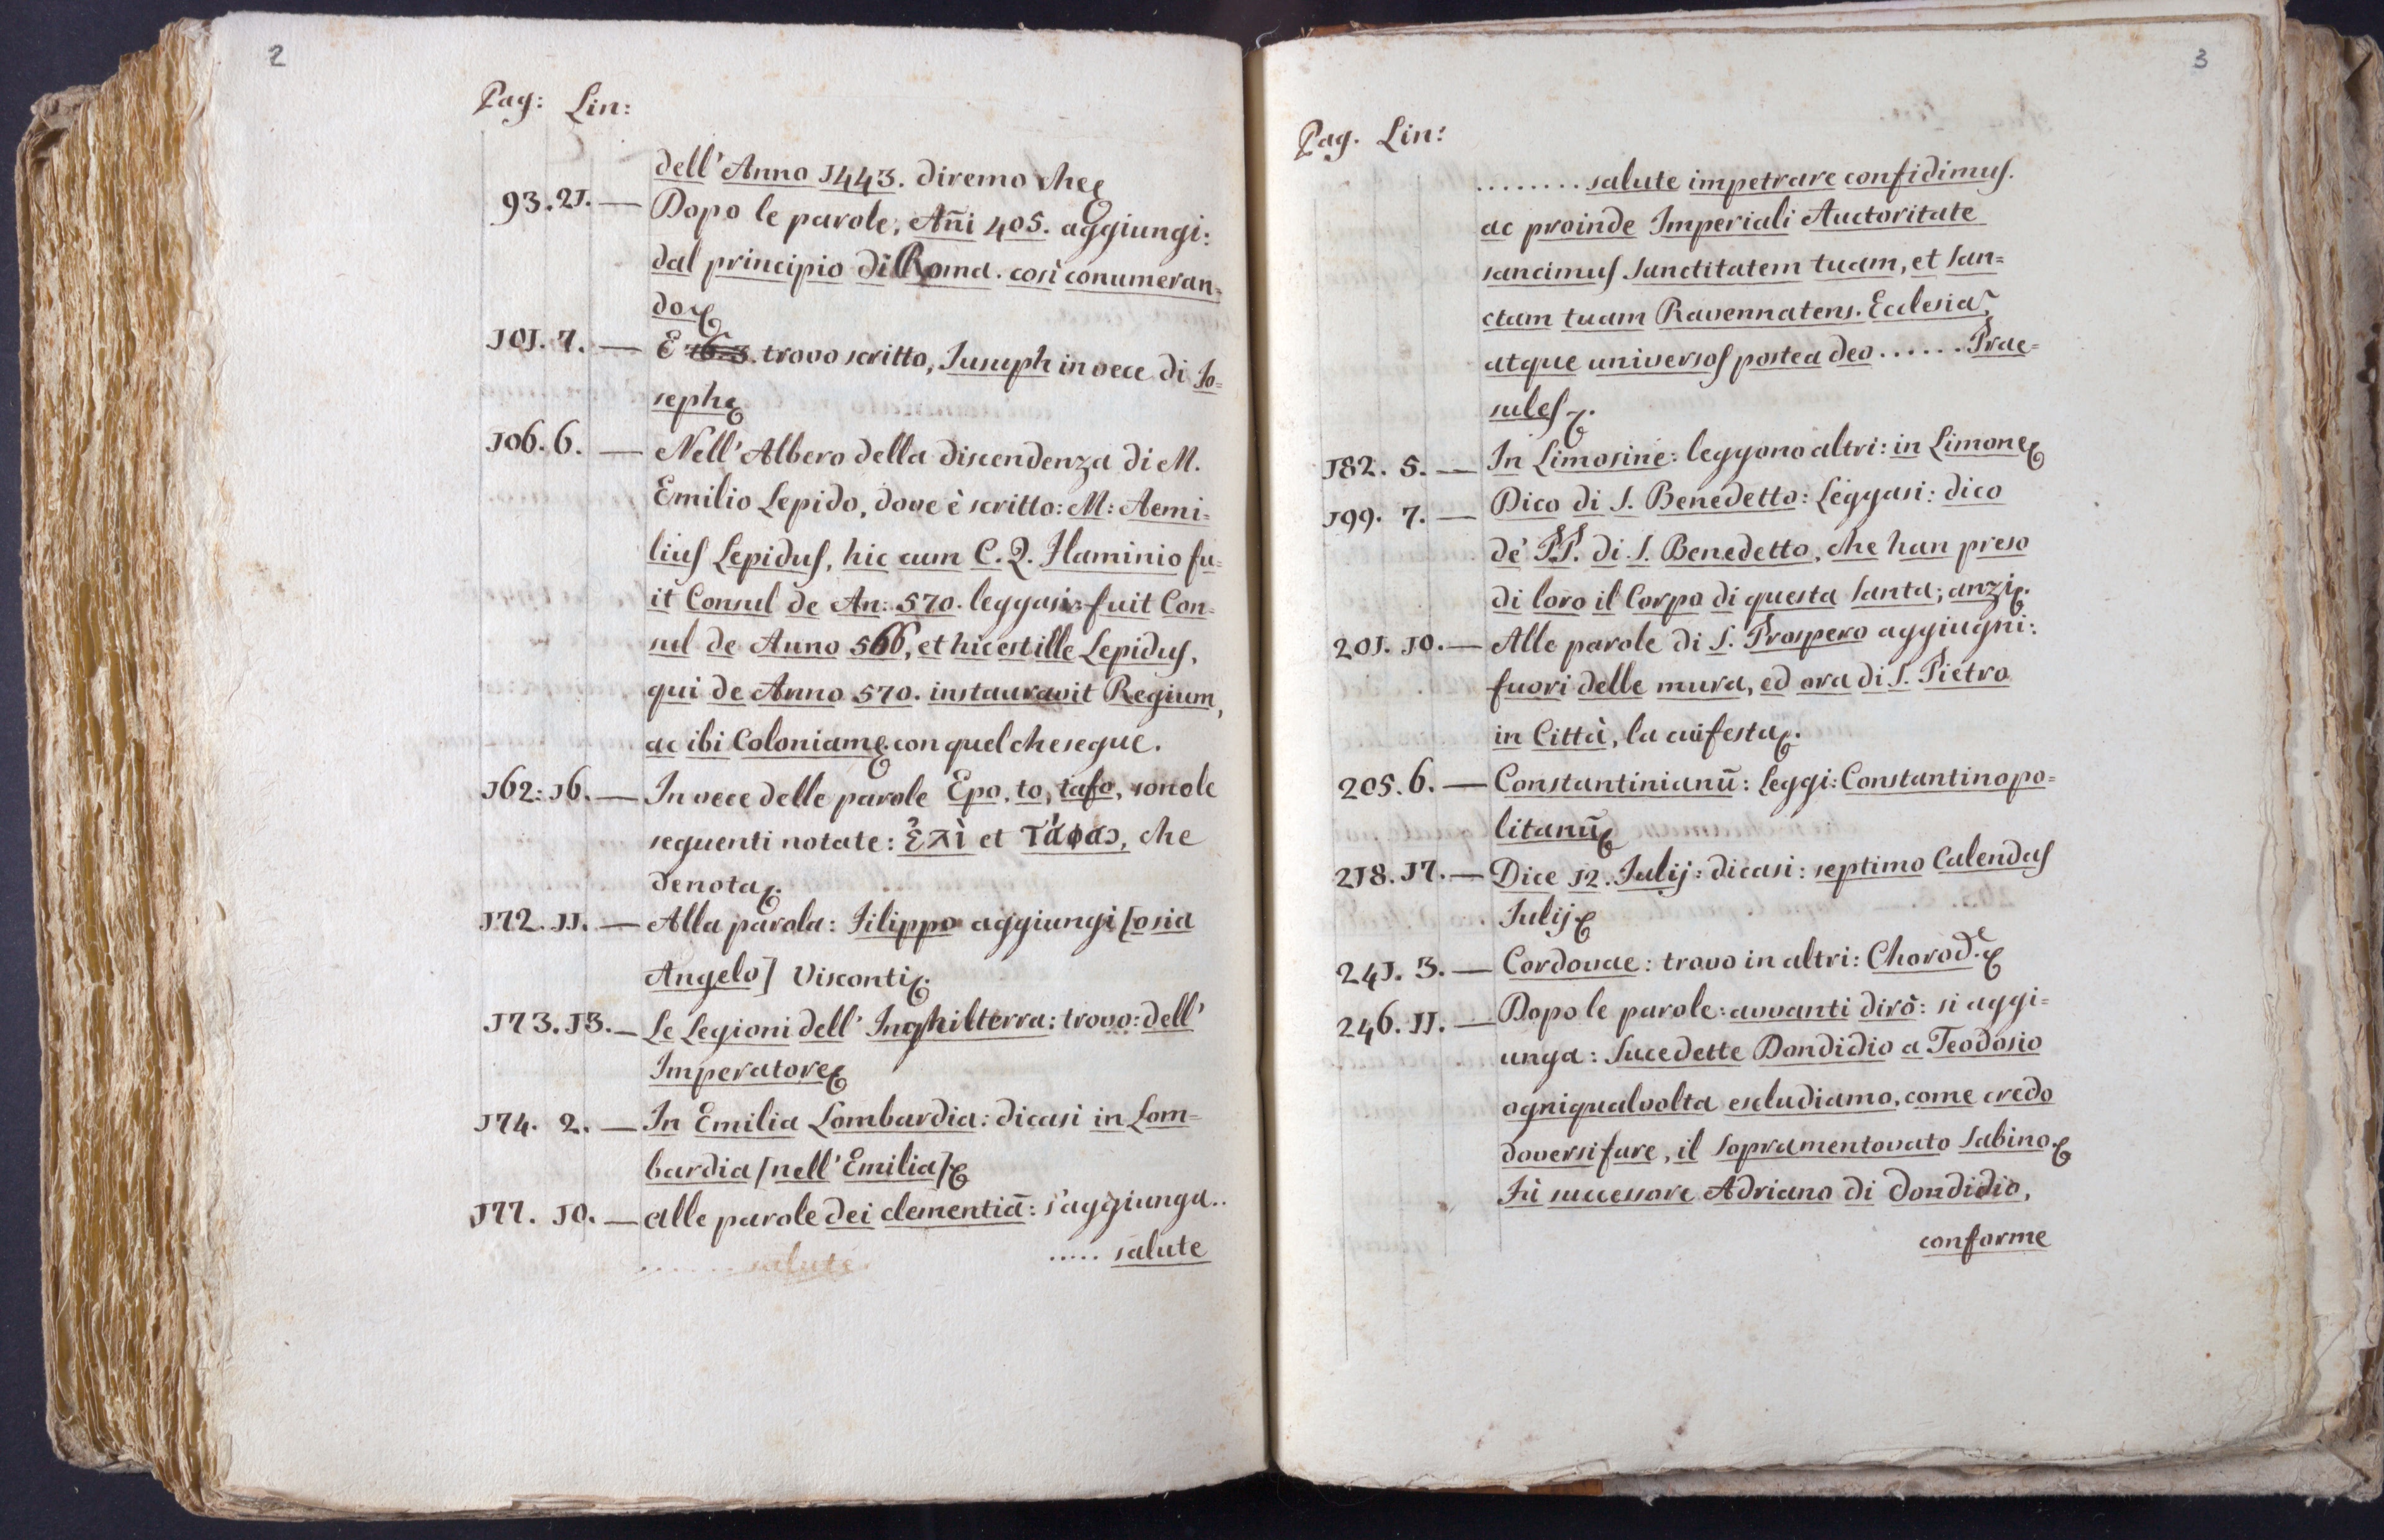 2
Pag: Lin:
dell' Anno 1443. diremo che
93. 21. — Dopo le parole, Añi 405. aggiungi:
dal principio di Roma. così conumeran=
do
101. 7. — E trovo scritto, Iusuph in vece di Jo=
seph
106. 6. — Nell' Albero della discendenza di M.
Emilio Lepido, dove è scritto: M: Aemi=
lius Lepidus, hic cum C. Q. Flaminio fu=
it Consul de An: 570. leggasi: fuit Con=
sul de Anno 566, et hic est ille Lepidus,
qui de Anno 570. instauravit Regium,
ac ibi Coloniam con quel che segue.
162: 16. — In vece delle parole Epo, to, tafo, son ole
seguenti notate: ἐπὶ et τάφας, che
denota.
172. 11. — Alla parola: Filippo aggiungi [osia
Angelo] Visconti.
173. 13. — Le Legioni dell' Inghilterra: trovo: dell'
Imperatore
174. 2. — In Emilia Lombardia: dicasi in Lom=
bardia [nell' Emilia]
177. 10. — alle parole dei clementiā: s'aggiunga..
..... salute
...... salute
3
Pag. Lin:
........ salute impetrare confidimus.
ac proinde Imperiali Auctoritate
sancimus Sanctitatem tuam, et San=
ctam tuam Ravennatens. Ecclesiã,
atque universos postea deo ...... Prae=
sules.
182. 5. — In Limosine: leggono altri: in Limone
199. 7. — Dico di S. Benedetto: Leggasi: dico
de' PP. di S. Benedetto, che han preso
di loro il Corpo di questa Santa; anzi.
201. 10. — Alle parole di S. Prospero aggiugni:
fuori delle mura, ed ora di S. Pietro
in Città, la cui festa.
205. 6. — Constantinianū: Leggi: Constantinopo=
litanū
218. 17. — Dice 12. Julij: dicasi: septimo Calendas
Julij
241. 3. — Cordovae: trovo in altri: Chorod.e
246. 11. — Dopo le parole: avvanti dirò: si aggi=
unga: Sucedette Dondidio a Teodosio
ogniqualvolta escludiamo, come credo
doversi fare, il sopramentovato Sabino.
Fù successore Adriano di Dondidio,
conforme